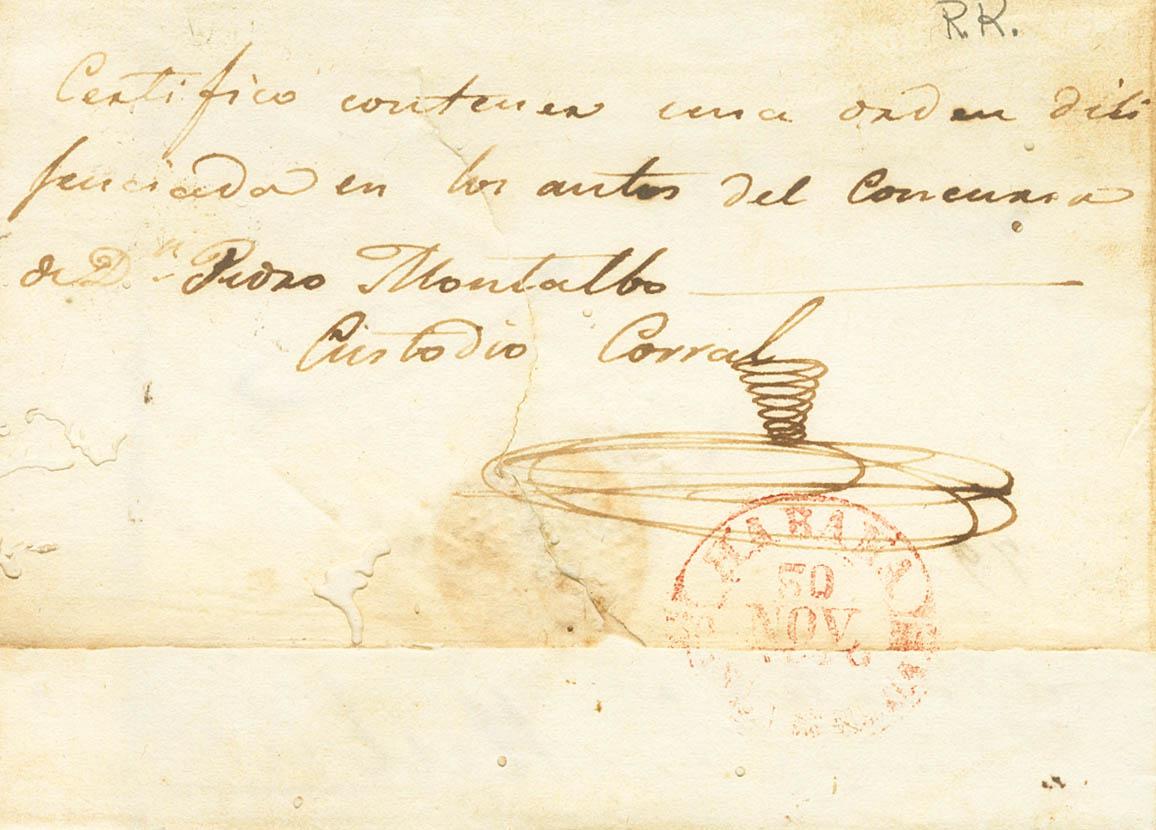 R.K.
Certifico contener una orden dili
fenciada en los autos del Concurso
de Dn. Pedro Montalbo
Custodio Corral
HABANA
30
NOV.